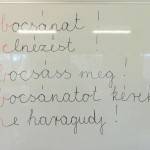 bocsánat !
elnézést !
bocsáss meg !
bocsánatot kérek
ne haragudj !